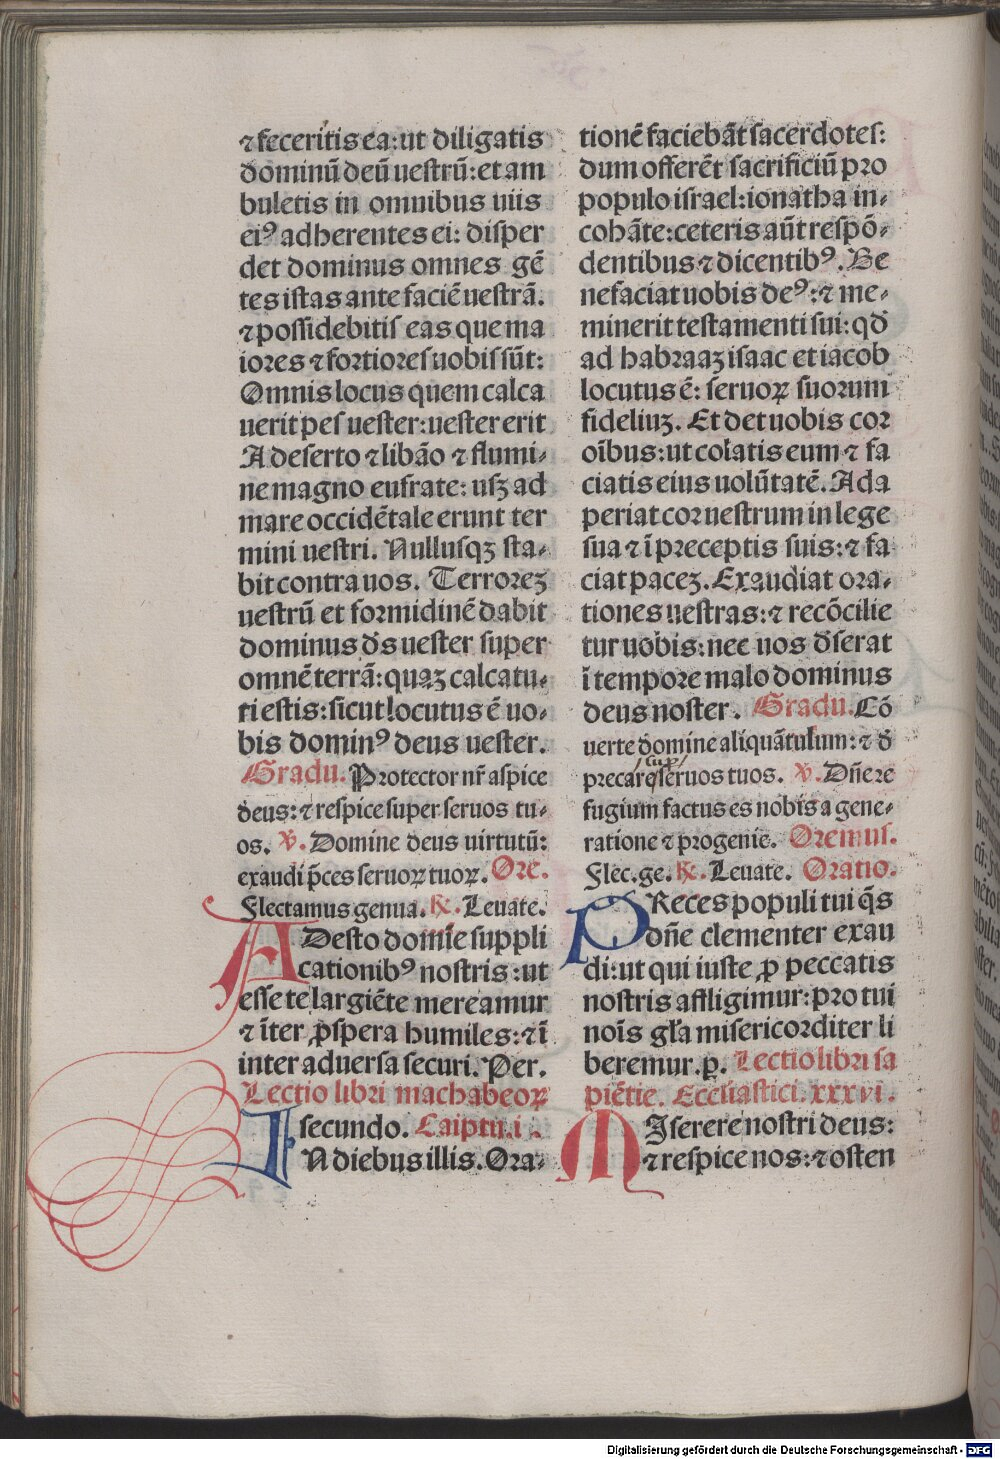 ⁊ feceritis ea: ut diligatis
dominū deū uestrū: et am
buletis in omnibus uiis
eiꝰ adherentes ei: disper
det dominus omnes gē
tes istas ante faciē uestrā.
⁊ possidebitis eas que ma
iores ⁊ fortiores uobis sūt:
Omnis locus quem calca
uerit pes uester: uester erit
A deserto ⁊ libāo ⁊ flumi-
ne magno eufrate: usqꝫ ad
mare occidētale erunt ter
mini uestri. Nullusqꝫ sta-
bit contra uos. Terroreꝫ
uestrū et formidinē dabit
dominus dꝰs uester super
omnē terrā: quaꝫ calcatu-
ri estis: sicut locutus ē uo-
bis dominꝰ deus uester.
Gradu. Protector nr̄ aspice
deus: ⁊ respice super seruos tu-
os. ℣. Domine deus uirtutū:
exaudi p̄ces seruoꝝ tuoꝝ. Ore.
Flectamus genua. ℟. Leuate.
ADesto domīe suppli
cationibꝰ nostris: ut
esse te largiēte mereamur
⁊ īter ꝓspera humiles: ⁊ ī
inter aduersa securi. Per.
Lectio libri machabeoꝝ
secundo. Caiptu. i.
IN diebus illis. Ora-
tionē faciebāt sacerdotes:
dum offerēt sacrificiū pro
populo israel: ionatha in-
cohāte: ceteris aūt respō-
dentibus ⁊ dicentibꝰ. Be
nefaciat uobis deꝰ: ⁊ me-
minerit testamenti sui: qd̄
ad habraaꝫ isaac et iacob
locutus ē: seruoꝝ suorum
fideliuꝫ. Et det uobis cor
oībus: ut colatis eum ⁊ fa
ciatis eius uolūtatē. Ada
periat cor uestrum in lege
sua ⁊ ī preceptis suis: ⁊ fa
ciat paceꝫ. Exaudiat ora-
tiones uestras: ⁊ recōcilie
tur uobis: nec uos d̄serat
ī tempore malo dominus
deus noster. Gradu. Cō
uerte domine aliquātulum: ⁊ d̄
sup̱
precare seruos tuos. ℣. Dn̄e re
fugium factus es nobis a gene-
ratione ⁊ progenie. Oremus.
Flec. ge. ℟. Leuate. Oratio.
PReces populi tui q̄s
dn̄e clementer exau
di: ut qui iuste ꝓ peccatis
nostris affligimur: pro tui
noīs gl̄a misericorditer li
beremur. ꝑ. Lectio libri sa
piētie. Ecclīastici. xxxvi.
MIserere nostri deus:
⁊ respice nos: ⁊ osten
Digitalisierung gefördert durch die Deutsche Forschungsgemeinschaft - DFG